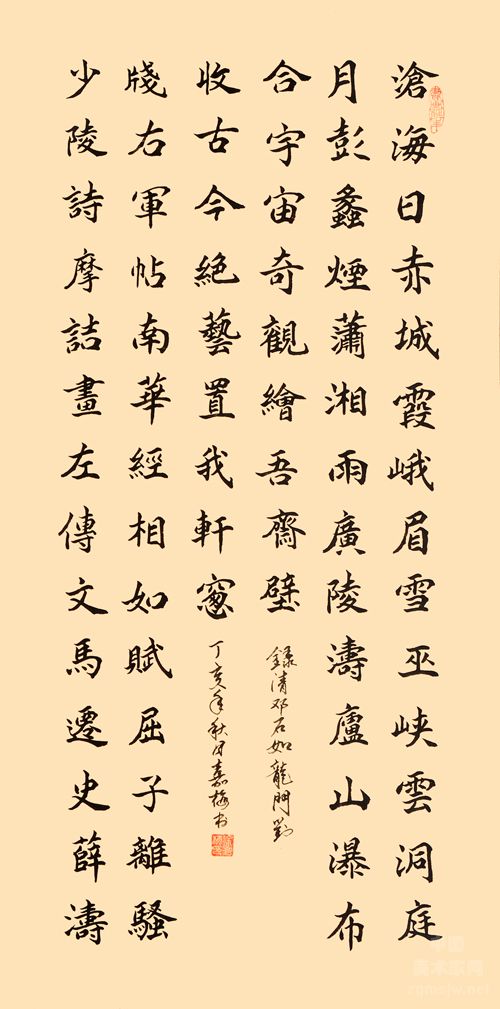 滄海日赤城霞峨眉雪巫峽雲洞庭
月彭蠡煙瀟湘雨廣陵濤廬山瀑布
合宇宙奇觀繪吾齋壁
錄清邓石如龍門對
少陵詩摩詰畫左傳文馬遷史薛濤
牋右軍帖南華經相如賦屈子離騷
收古今絕藝置我軒窻
丁亥年秋月嘉梅书
中国
美术家网
zgmsjw.net